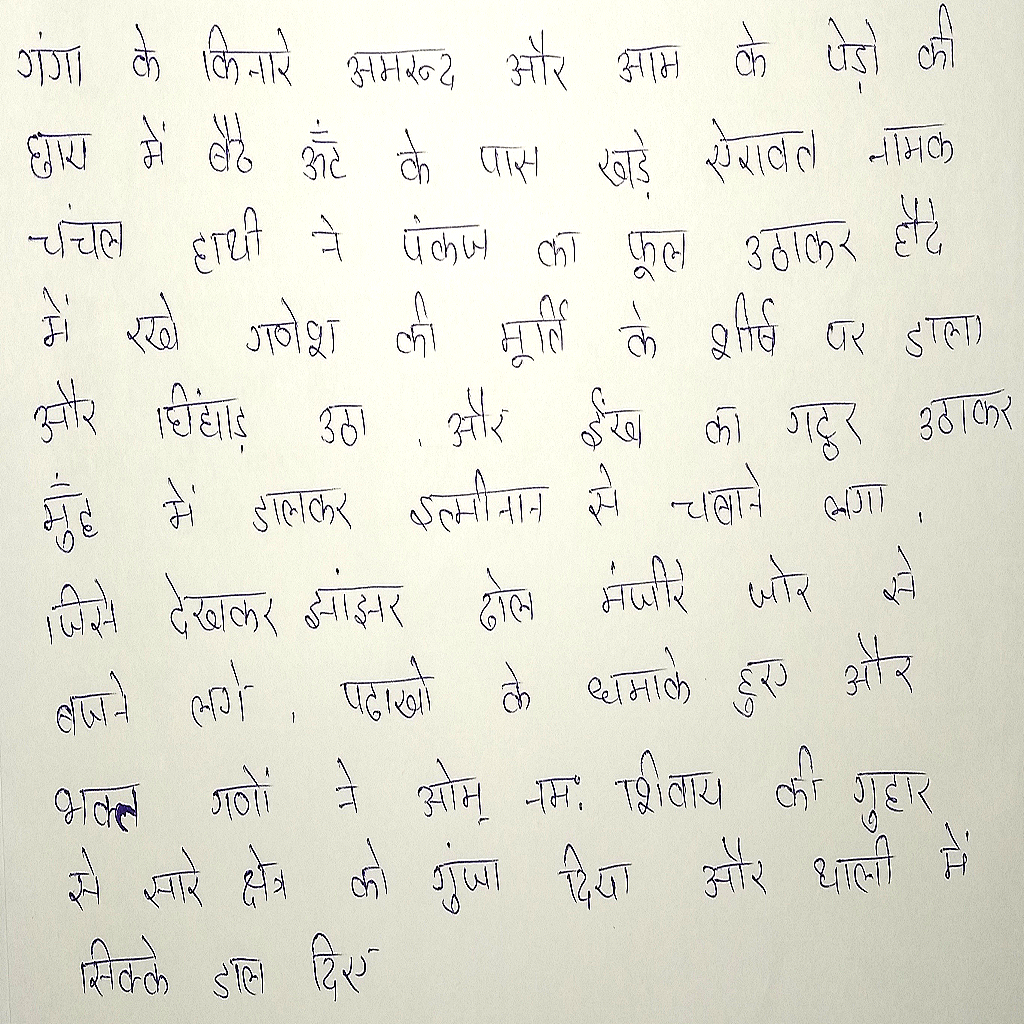 गंगा के किनारे अमरूद और आम के पेड़ो की
छाय में बैठे ऊँट के पास खड़े ऐरावत नामक
चंचल हाथी ने पंकज का फूल उठाकर हौदे
में रखे गणेश की मूर्ति के शीर्ष पर डाला
और चिंघाड़ उठा . और ईख का गट्ठर उठाकर
मुँह में डालकर इत्मीनान से चबाने लगा .
जिसे देखकर झांझर ढोल मंजीरे जोर से
बजने लगे . पटाखो के धमाके हुए और
भक्त गणों ने ओम् नमः शिवाय की गुहार
से सारे क्षेत्र को गुंजा दिया और थाली में
सिक्के डाल दिए